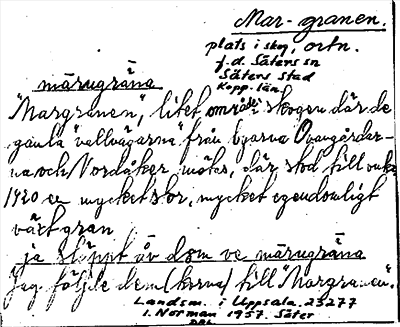 Mar-granen.
plats i skog, ortn.
f.d. Säters sn
Säters stad
Kopp. län
märugräna
"Margranen", litet område i skogen där de
gamla "vallvägarna" från byarna Ovangårdar-
na och Nordåker mötas, där stod till omkr
1920 en mycket stor, mycket egendomligt
växt gran
ja släppt åv dom ve märugräna
jag följde dem (korna) till "Margranen".
Landsm. i Uppsala. 23277
I. Norman 1957. Säter
DAL.